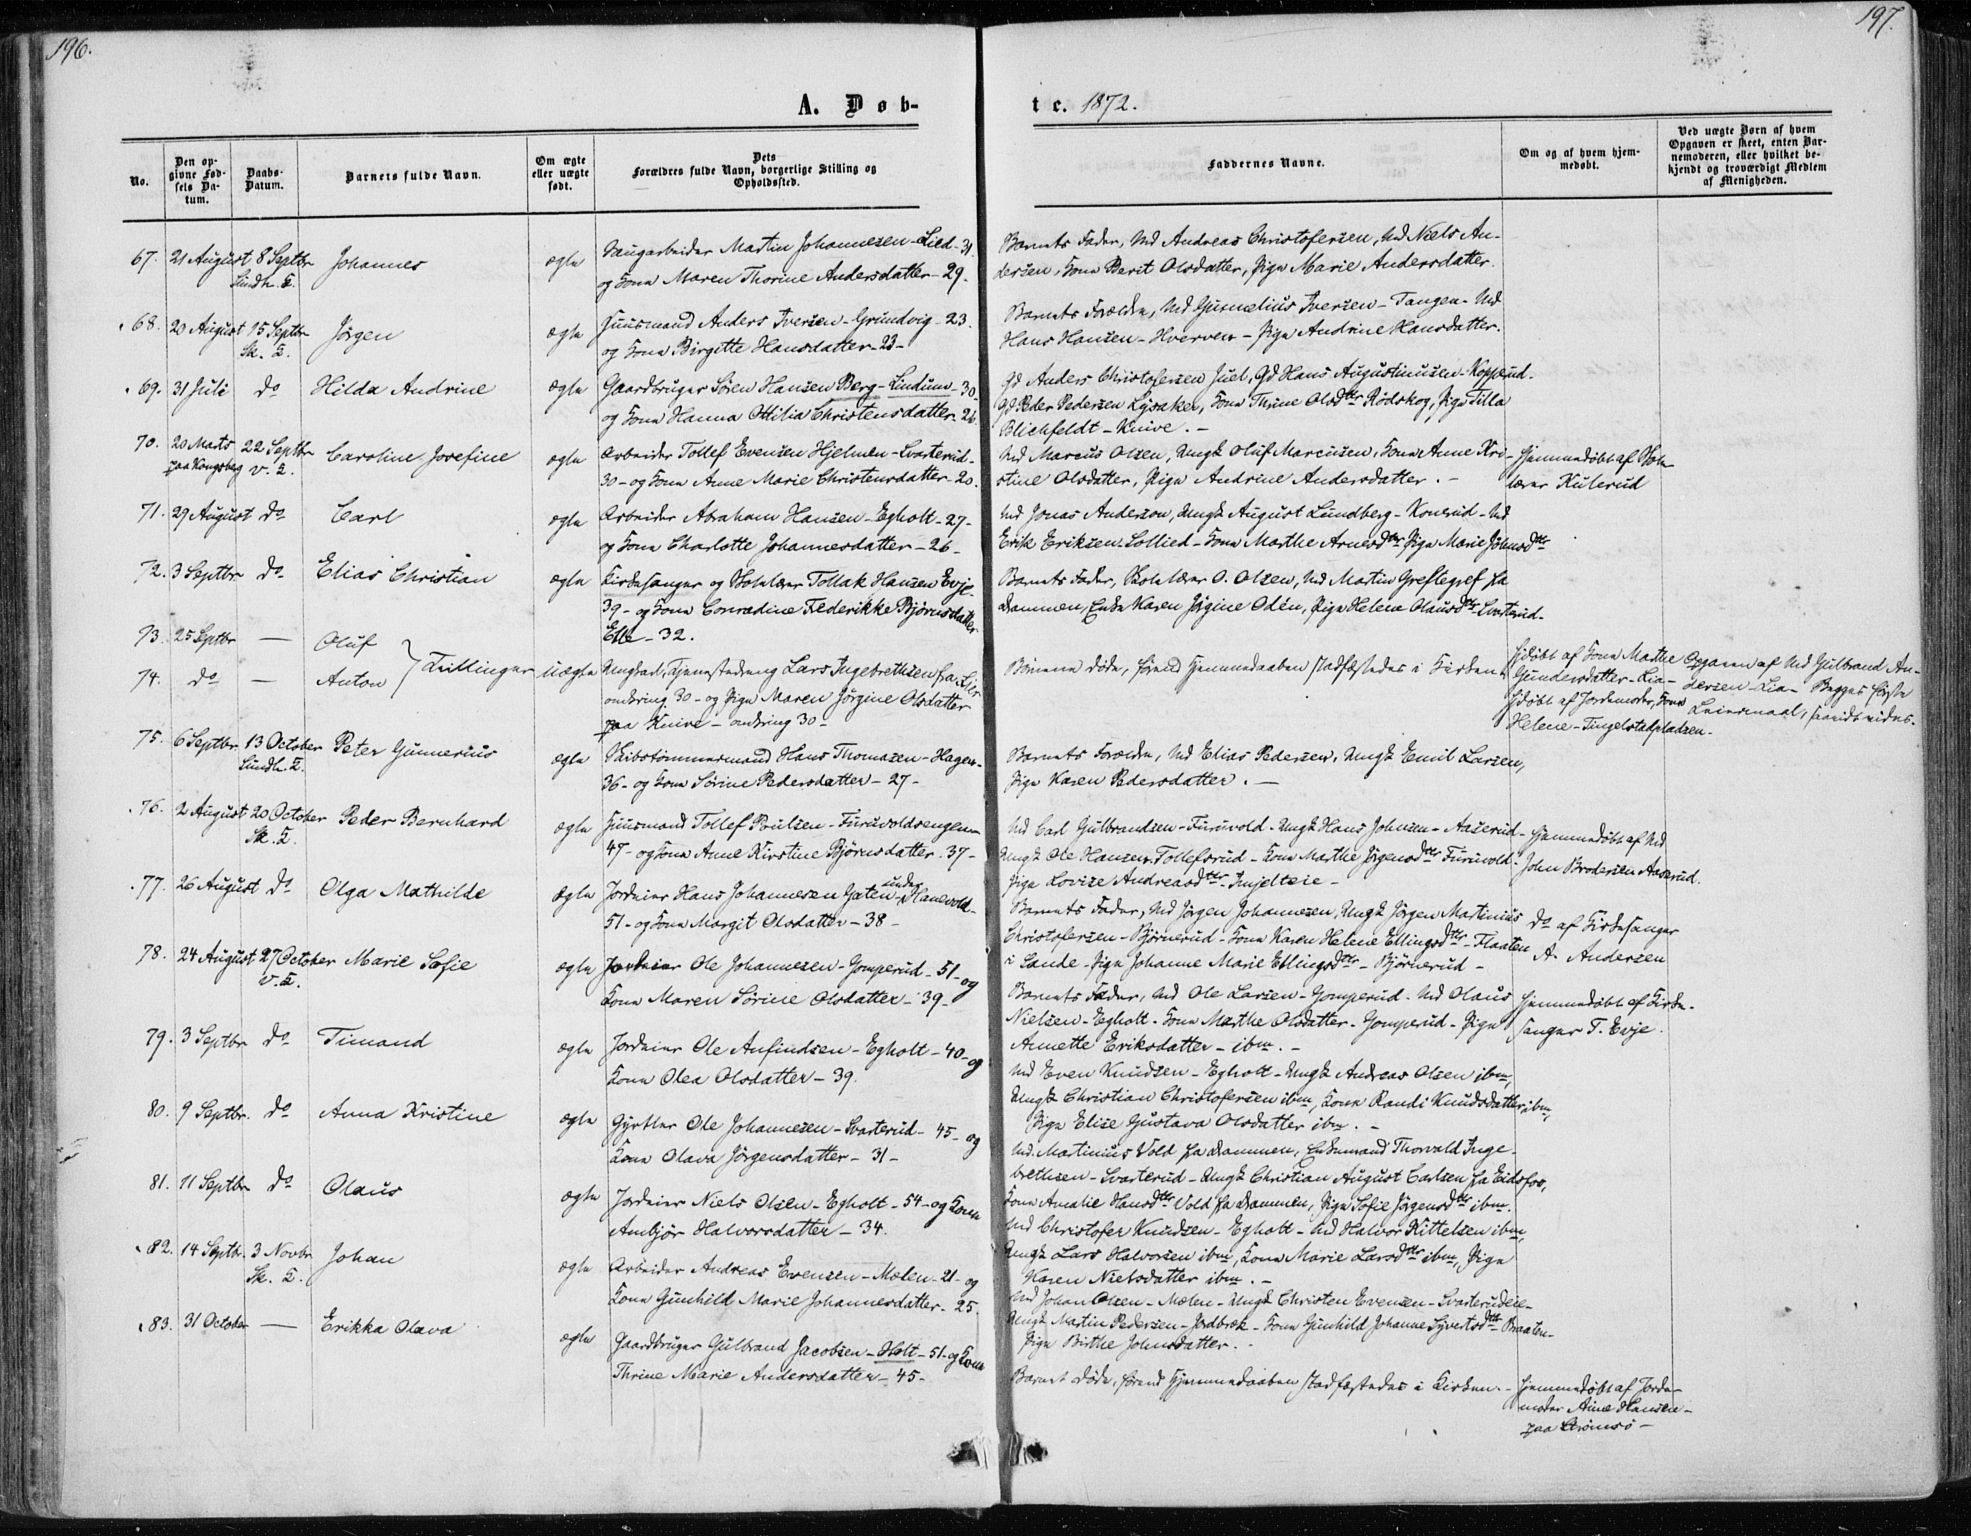 196.
197.
A. Døb-
te. 1872.
No.
Den op-
givne Fød-
sels Da-
tum.
Daabs-
Datum.
Barnets fulde Navn.
Om ægte
eller uægte
født.
Dets
Forældres fulde Navn, borgerlige Stilling og
Opholdssted.
Faddernes Navne.
Om og af hvem hjem-
medøbt.
Ved uægte Børn af hvem
Opgaven er skeet, enten Bar-
nemoderen, eller hvilket be-
kjendt og troværdigt Medlem
af Menigheden.
67. 21 August 8 Septbr Johannes ægte Saugarbeider Martin Johannesen - Lied - 31
og Kone Maren Thorine Andersdatter - 29.
Barnets Fader, Ud Andreas Christofersen, Ud Niels An-
dersen, Kone Berit Olsdatter, Pige Marie Andersdatter.
68. 20 August 15 Septbr Jörgen ægte Huusmand Anders Iversen - Grundvig - 23.
Sk. K. og Kone Birgitte Hansdatter - 23 -
Barnets Forældre, Ud Gunnelius Iversen - Tangen - Ud
Hans Hansen - Hverven - Pige Andrine Hansdatter.
69. 31 Juli do Hilda Andrine ægte Gaardbruger Søren Hansen Berg - Lindum - 30
og Kone Hanna Ottilia Christensdatter - 26.
Gd Anders Christofersen Juel, Gd Hans Augustinusen - Kopperud.
Gd Peder Pedersen Lysaker, Kone Thrine Olsdttr Rødskog, Pige Tilla
Blichfeldt - Knive. -
70. 20 Marts 22 Septbr Caroline Josefine ægte Arbeider Tollef Evensen Hjelmen - Svarterud -
paa Kongsberg V. K. 30 - og Kone Anne Marie Christensdatter - 20.
Ud Marcus Olsen, Ungk Oluf Marcusen, Kone Anne Kri-
stine Olsdatter, Pige Andrine Andersdatter. -
Hjemmedøbt af Skole-
lærer Kulerud
71. 29 August do Carl ægte Arbeider Abraham Hansen - Egholt - 27 -
og Kone Charlotte Johannesdatter - 26 -
Ud Jonas Anderson, Ungk August Lundberg - Konerud - Ud
Erik Eriksen Sollied - Kone Marthe Arnesdttr Pige Marie Johnsdttr
72. 3 Septbr do Elias Christian ægte Kirkesanger og Skolelærer Tollak Hansen Evje
39 - og Kone Conradine Frederikke Bjørnsdatter
Elle - 32.
Barnets Fader, Skolelærer O. Olsen, Ud Martin Greftegref fra
Drammen, Enke Karen Jørgine Odén, Pige Helene Olausdttr Svarterud.
73. 25 Septbr — Oluf
74. do — Anton } Tvillinger uægte Ungkarl, Tjenestedreng Lars Ingebrethsen fra Lier
omkring 30 - og Pige Maren Jörgine Olsdatter
paa Knive - omkring 30 -
Börnene døde, førend Hjemmedaaben stadfæstedes i Kirken
Hjdøbt af Kone Marthe
Gundersdatter - Lia -
Hjdøbt af Jordemoder, Kone
Helene - Tingelstadpladsen.
Opgaven af Ud Gulbrand An-
dersen - Lia - Begges første
Leiermaal, saavidt vides.
75. 6 Septbr. 13 October Peter Gunnerius ægte Skibstömmermand Hans Thomasen - Hagen -
36 - og Kone Sörine Pedersdatter - 27 -
Barnets Forældre, Ud Elias Pedersen, Ungk Emil Larsen,
Pige Karen Pedersdatter. -
76. 2 August 20 October Peder Bernhard ægte Huusmand Tollef Poulsen - Furuvoldsengen -
Sk. K. 47 - og Kone Anne Kirstine Bjørnsdatter - 37 -
Ud Carl Gulbrandsen - Furuvold - Ungk Hans Johnsen - Aaserud -
Ungk Ole Hansen Tollefsrud - Kone Marthe Jörgensdttr Furuvold -
Pige Lovise Andreasdttr Injelteie -
Hjemmedøbt af Ud
John Brodersen Aaserud.
77. 26 August do Olga Mathilde ægte Jordeier Hans Johannesen Gaten under Hanevold -
51 - og Kone Margit Olsdatter - 38 -
Barnets Fader, Ud Jörgen Johannesen, Ungk Jörgen Martinius
Christofersen - Björnerud - Kone Karen Helene Ellingsdttr - Flaaten
i Sande - Pige Johanne Marie Ellingsdttr - Björnerud -
do af Kirkesanger
A. Andersen
78. 24 August 27 October Marie Sofie ægte Jordeier Ole Johannesen - Gomperud - 51 - og
V. K. Kone Maren Sörine Olsdatter - 39 -
Barnets Fader, Ud Ole Larsen - Gomperud - Ud Olaus
Nielsen - Egholt - Kone Marthe Olsdatter - Gomperud - Pige
Annette Eriksdatter - ibm. -
Hjemmedøbt af Kirke-
sanger T. Evje.
79. 3 Septbr do Timand ægte Jordeier Ole Anfindsen - Egholt - 40 - og
Kone Olea Olsdatter - 39.
Ud Even Knudsen - Egholt - Ungk Andreas Olsen ibm,
Ungk Christian Christofersen ibm, Kone Randi Knudsdatter ibm,
Pige Elise Gustava Olsdatter ibm. -
80. 9 Septbr. do Anna Kristine ægte Gjørtler Ole Johannesen - Svarterud - 45 - og
Kone Olava Jörgensdatter - 31 -
Ud. Martinius Vold fra Drammen, Enkemand Thorvald Inge-
brethsen - Svarterud - Ungk Christian August Carlsen fra Eidsfos,
Kone Amalie Hansdttr Vold fra Drammen, Pige Sofie Jörgensdttr ibm.
81. 11 Septbr do Olaus ægte Jordeier Niels Olsen - Egholt - 54 - og Kone
Ambjør Halvorsdatter - 34.
Ud Christofer Knudsen - Egholt - Ud Halvor Kittelsen ibm,
Ungk Lars Halvorsen ibm, Kone Marie Larsdttr ibm, Pige
Karen Nielsdatter ibm. -
82. 14 Septbr. 3 Novbr Johan ægte Arbeider Andreas Evensen - Mælen - 21 - og
Sk. K. Kone Gunhild Marie Johannesdatter - 25.
Ud Johan Olsen - Mælen - Ungk Christen Evensen - Svarterudeie -
Ungk Martin Pedersen - Jordbræk - Kone Gunhild Johanne Syvertsdttr Braaten -
Pige Birthe Johnsdatter. -
83. 31 October — Erikka Olava ægte Gaardbruger Gulbrand Jacobsen - Holt - 51 - og Kone
Thrine Marie Andersdatter - 45 -
Barnet døde, førend Hjemmedaaben stadfæstedes i Kirken. -
Hjemmedøbt af Jorde-
moder Aine Hansen -
paa Strømsø -